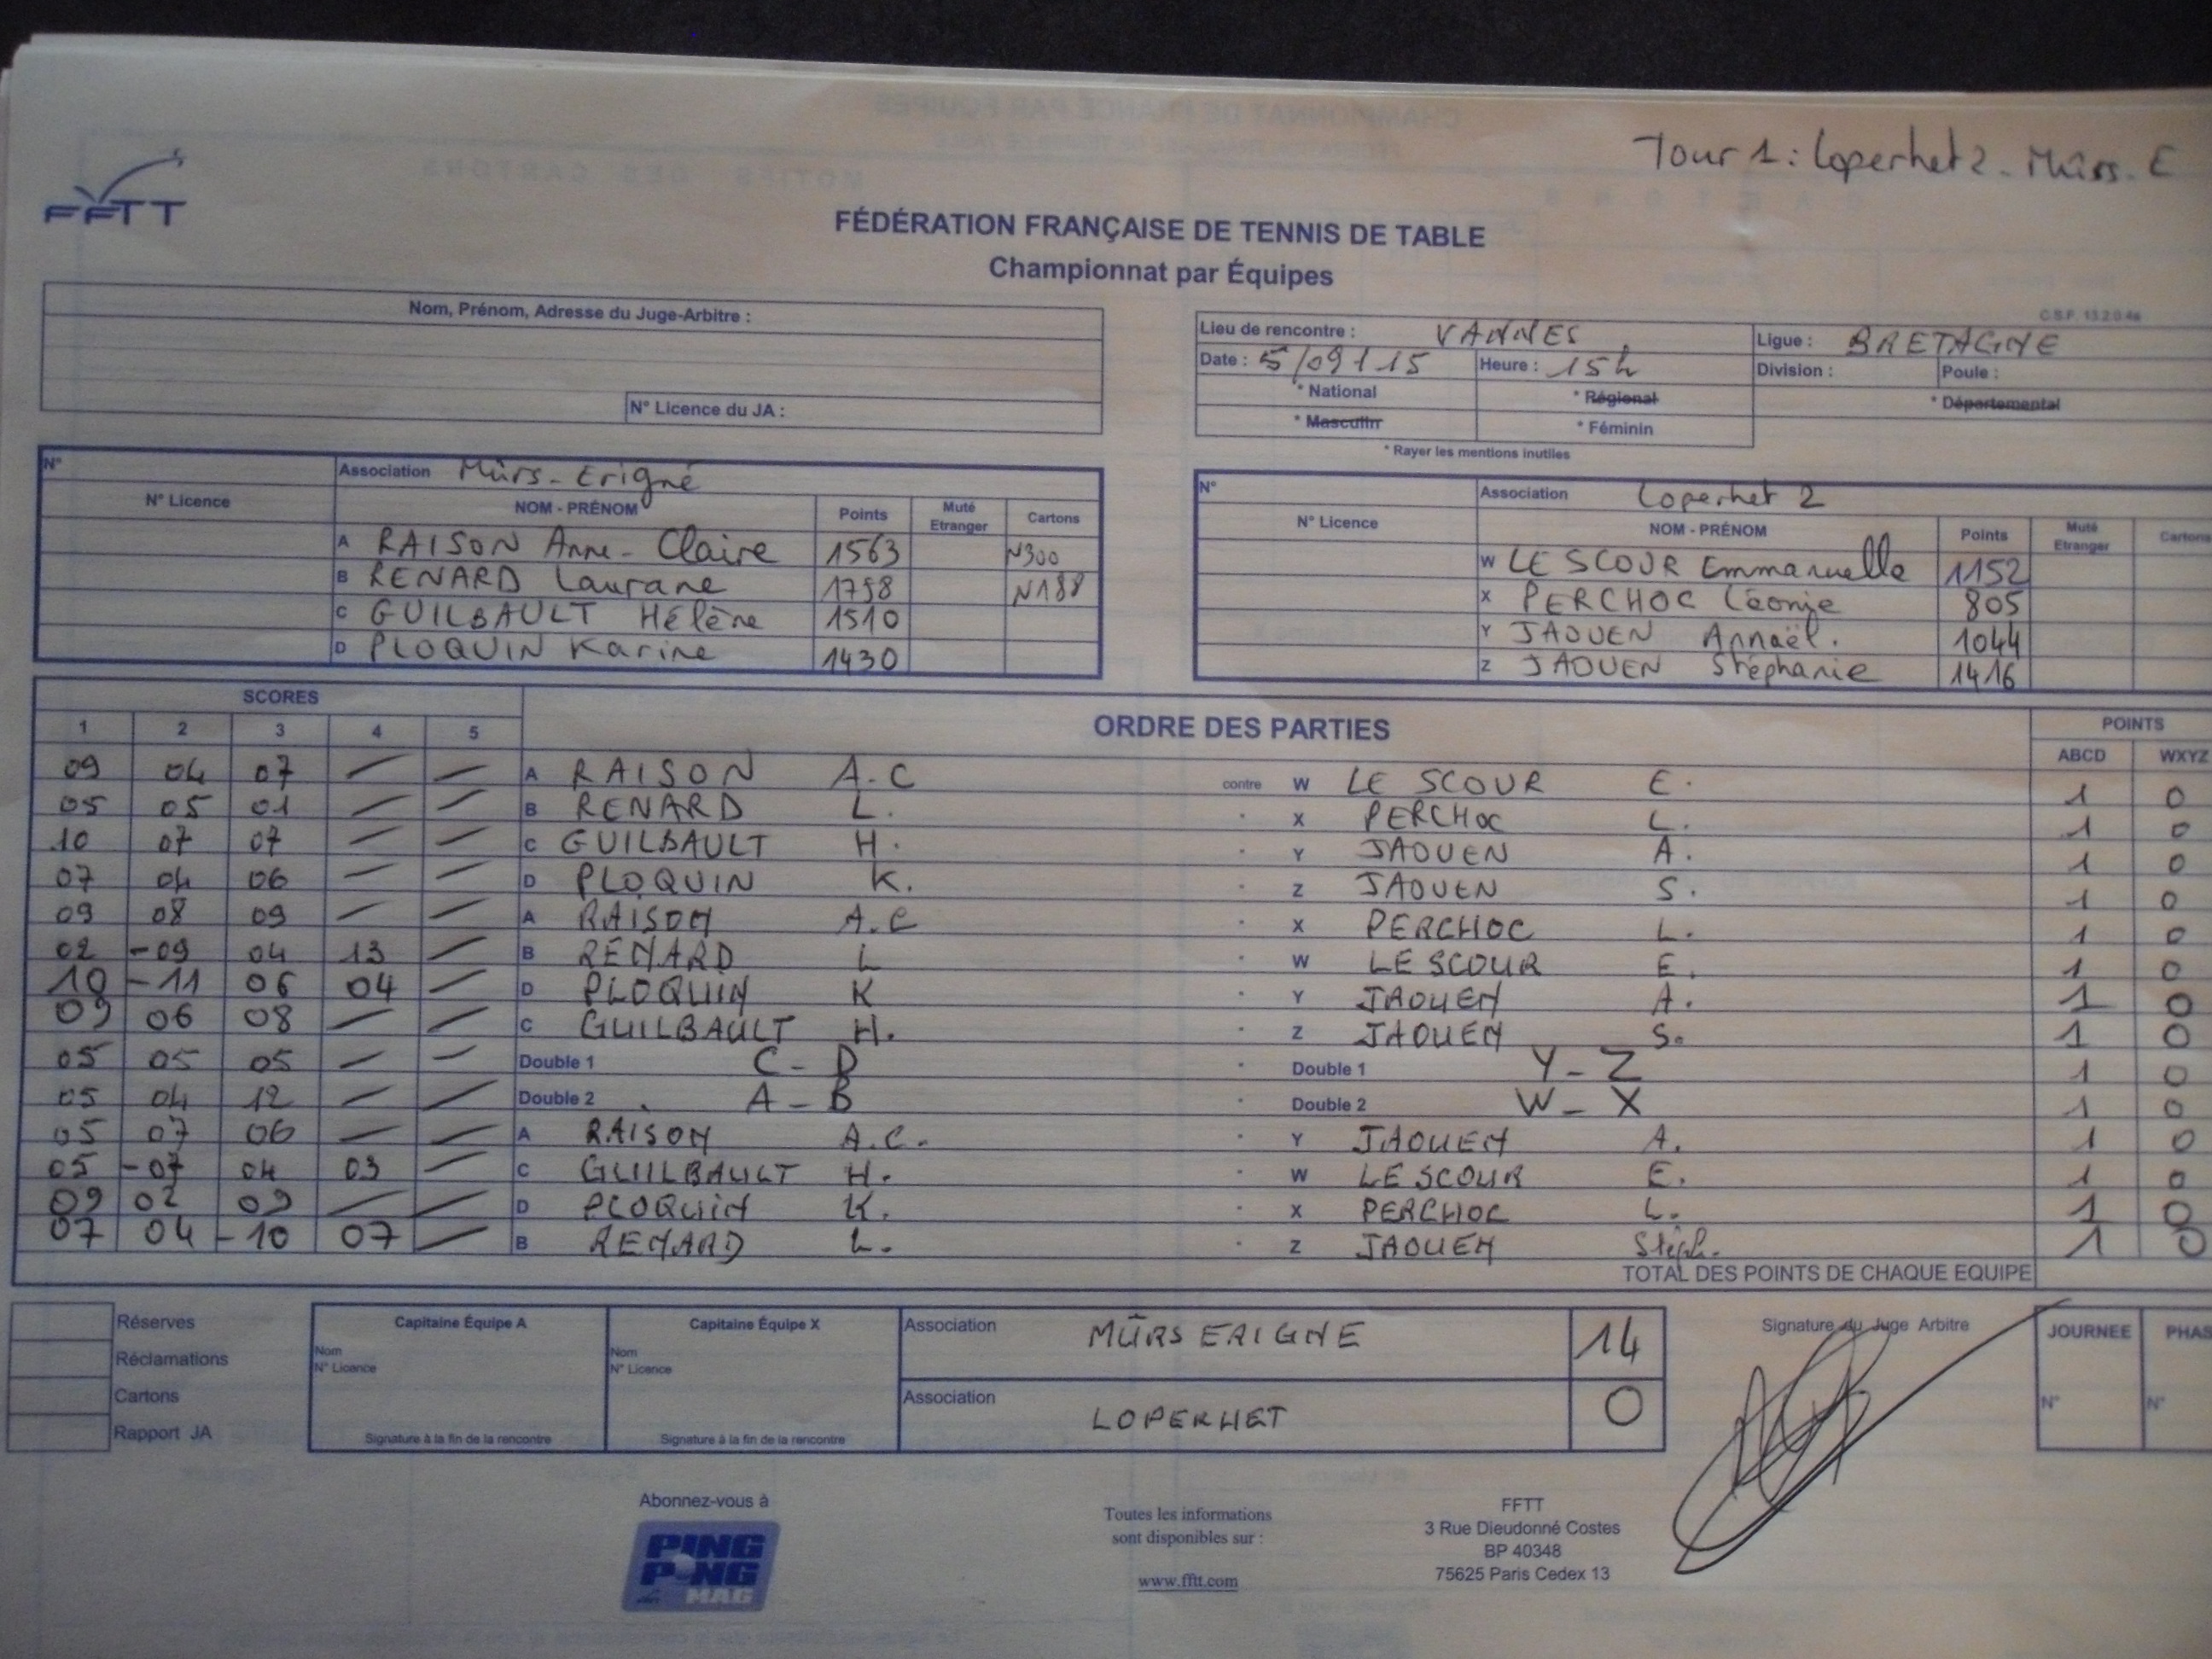 Tour 1 : Loperhet 2 - Mûrs. E
FFTT
FÉDÉRATION FRANÇAISE DE TENNIS DE TABLE
Championnat par Équipes
C.S.F. 13.2.0.4a
Nom, Prénom, Adresse du Juge-Arbitre :
N° Licence du JA :
Lieu de rencontre : VANNES Ligue : BRETAGNE
Date : 5/09/15 Heure : 15h Division : Poule :
* National * Régional * Départemental
* Masculin * Féminin
* Rayer les mentions inutiles
N° Association Mûrs-Erigné
N° Licence NOM - PRÉNOM Points Muté Etranger Cartons
A RAISON Anne-Claire 1563 N300
B RENARD Laurane 1798 N188
C GUILBAULT Hélène 1510
D PLOQUIN Karine 1430
N° Association Loperhet 2
N° Licence NOM - PRÉNOM Points Muté Etranger Cartons
W LE SCOUR Emmanuelle 1152
X PERCHOC Léonie 805
Y JAOUEN Annaël. 1044
Z JAOUEN Stéphanie 1416
SCORES ORDRE DES PARTIES POINTS
1 2 3 4 5 ABCD WXYZ
09 04 07 — — A RAISON A.C contre W LE SCOUR E. 1 0
05 05 01 — — B RENARD L. " X PERCHOC L. 1 0
10 07 07 — — C GUILBAULT H. " Y JAOUEN A. 1 0
07 04 06 — — D PLOQUIN K. " Z JAOUEN S. 1 0
09 08 09 — — A RAISON A.C " X PERCHOC L. 1 0
02 -09 04 13 — B RENARD L " W LE SCOUR E. 1 0
10 -11 06 04 — D PLOQUIN K " Y JAOUEN A. 1 0
09 06 08 — — C GUILBAULT H. " Z JAOUEN S. 1 0
05 05 05 — — Double 1 C - D " Double 1 Y - Z 1 0
05 04 12 — — Double 2 A - B " Double 2 W - X 1 0
05 07 06 — — A RAISON A.C. " Y JAOUEN A. 1 0
05 -07 04 03 — C GUILBAULT H. " W LE SCOUR E. 1 0
09 02 09 — — D PLOQUIN K. " X PERCHOC L. 1 0
07 04 -10 07 — B RENARD L. " Z JAOUEN Stéph. 1 0
TOTAL DES POINTS DE CHAQUE EQUIPE
Réserves
Réclamations
Cartons
Rapport JA
Capitaine Équipe A
Nom
N° Licence
Signature à la fin de la rencontre
Capitaine Équipe X
Nom
N° Licence
Signature à la fin de la rencontre
Association MÛRS ERIGNE 14
Association LOPERHET 0
Signature du Juge Arbitre
JOURNEE PHAS
N° N°
Abonnez-vous à
PING PONG MAG
Toutes les informations
sont disponibles sur :
www.fftt.com
FFTT
3 Rue Dieudonné Costes
BP 40348
75625 Paris Cedex 13